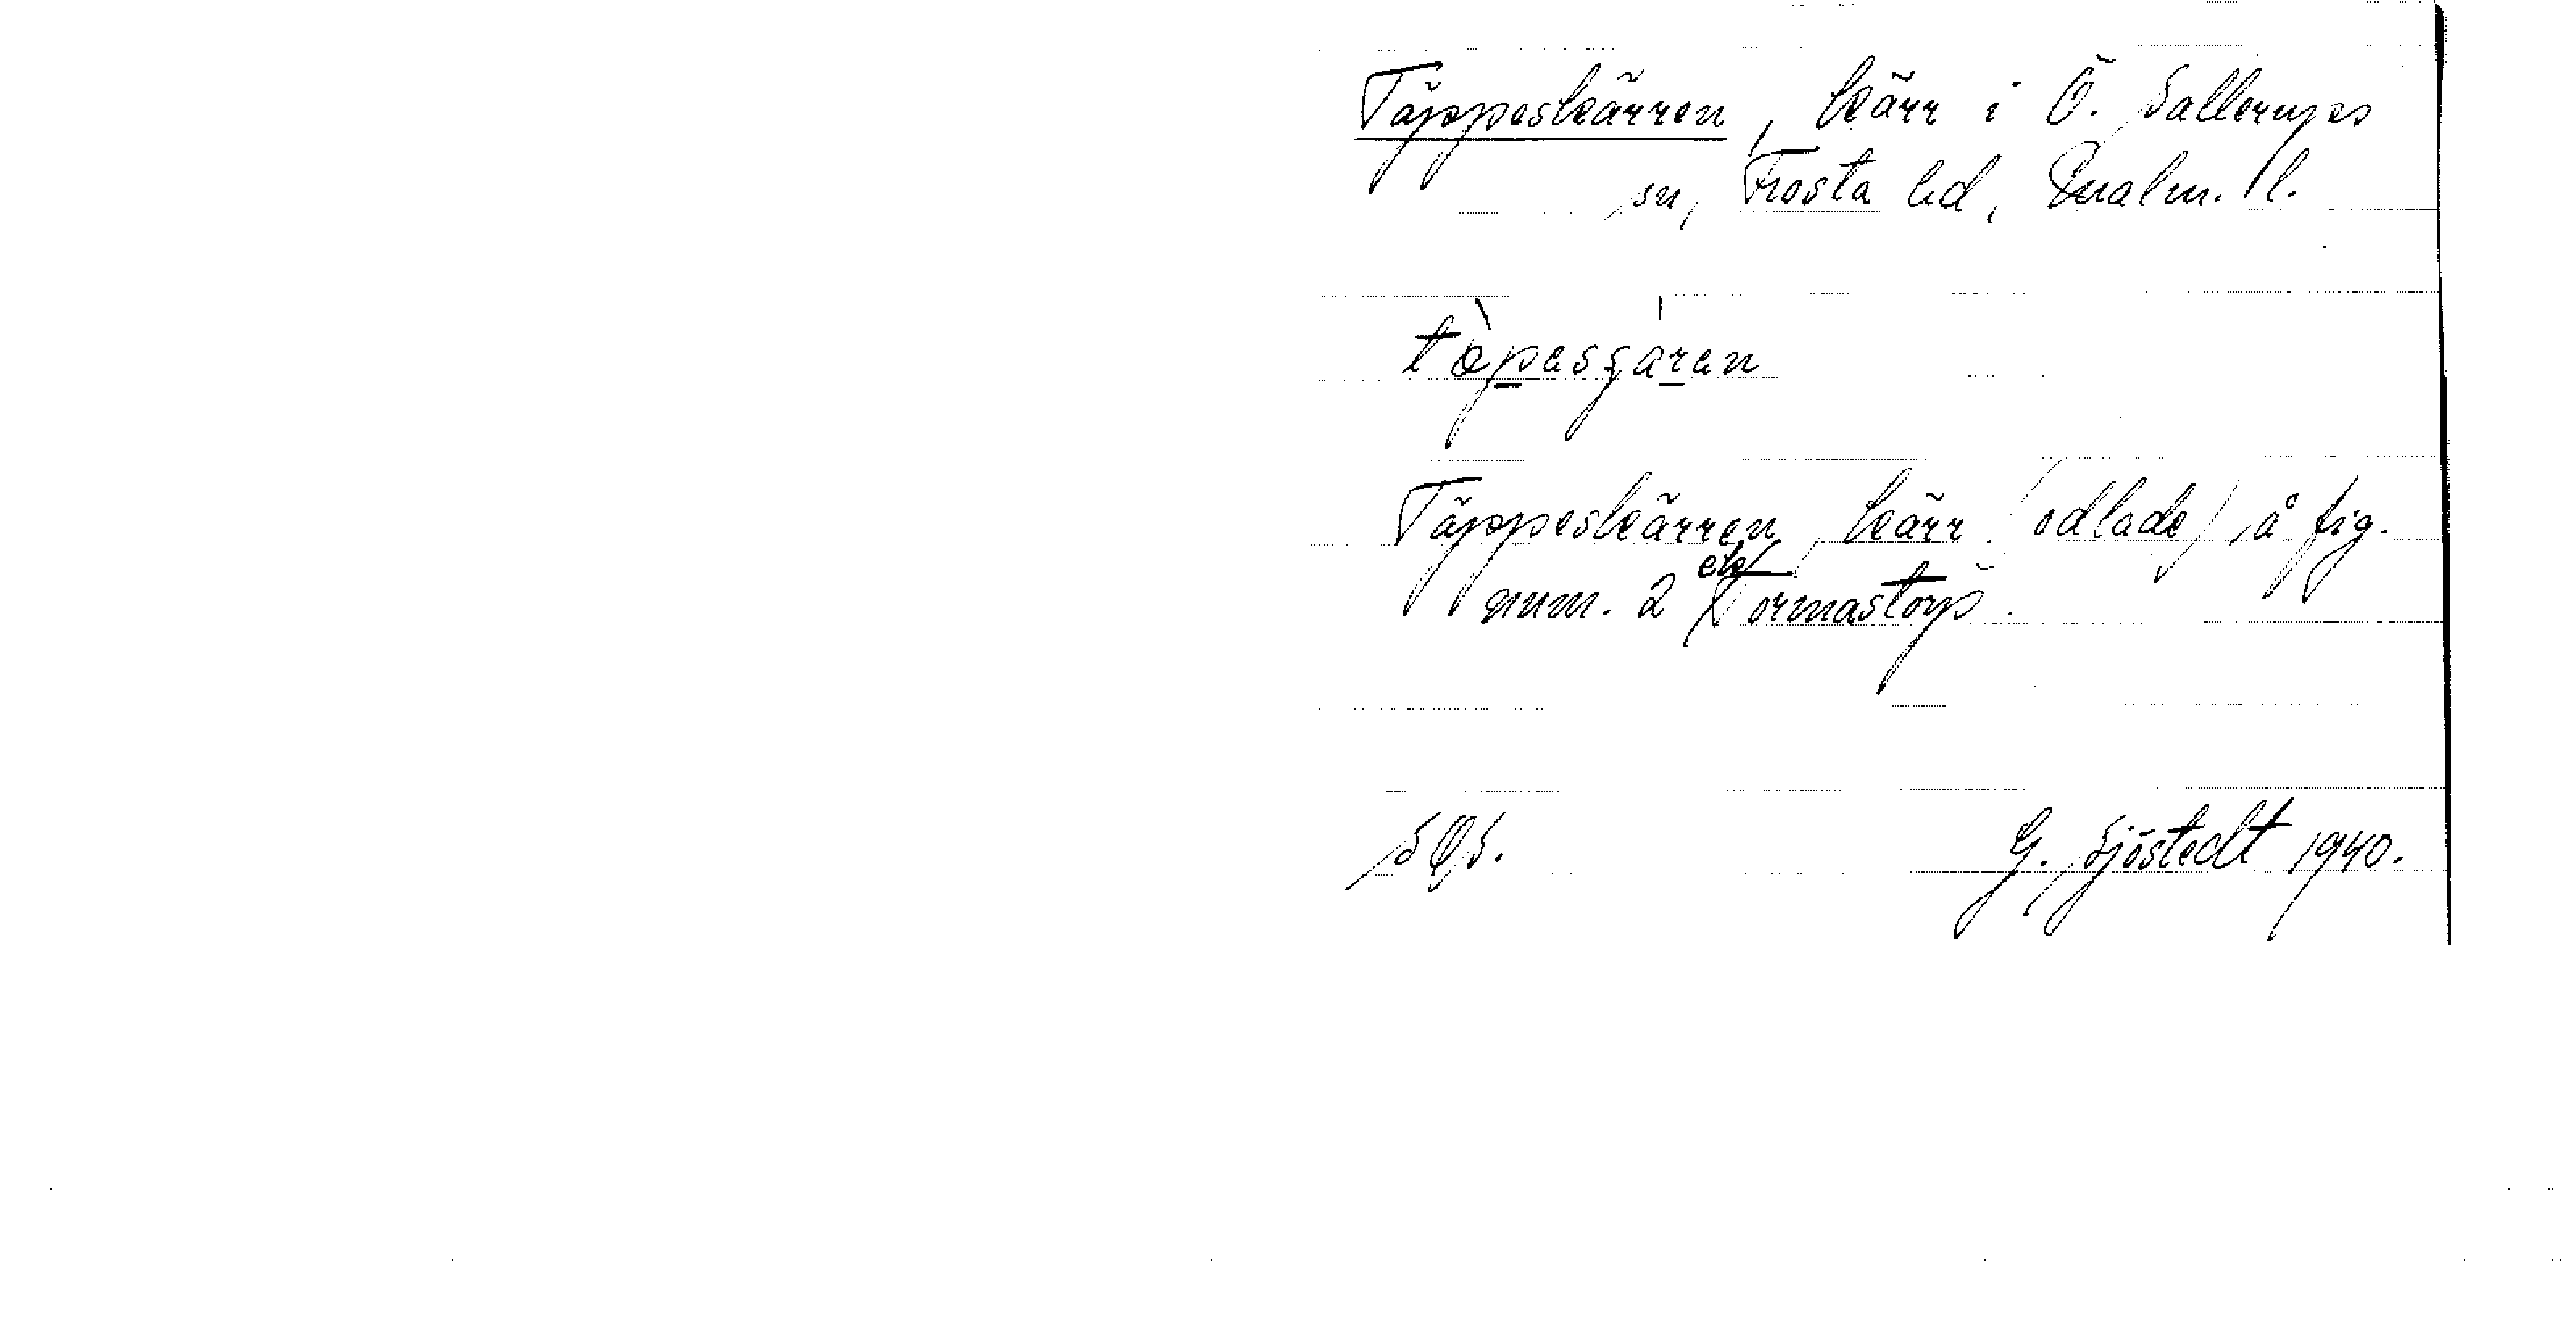 Täppeskärren, kärr i Ö. Sallerups
sn, Frosta hd, Malm. l.
tæ̀pesçǽren
Täppeskärren, kärr (odlade) å fig.
num. 2 Tormastorp.
G. Sjöstedt 1940.